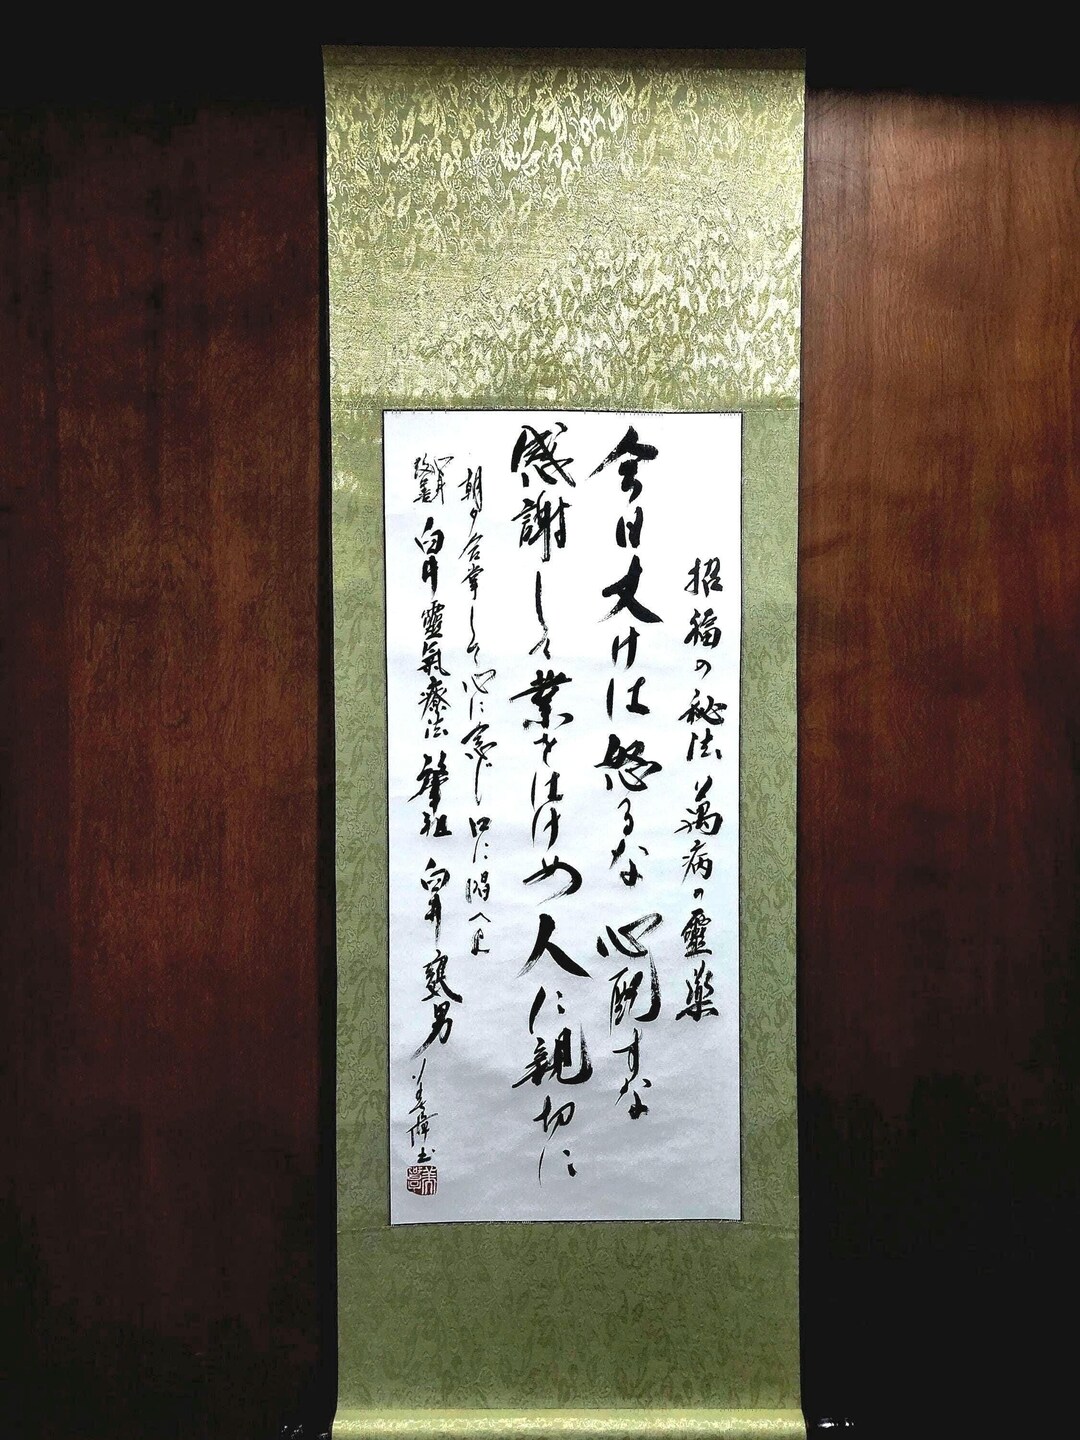 招福の秘法萬病の靈薬
今日丈けは怒るな心配すな
感謝して業をはけめ人に親切に
朝夕合掌して心に念じ口に唱へよ
心身改善臼井靈氣療法肇祖臼井甕男